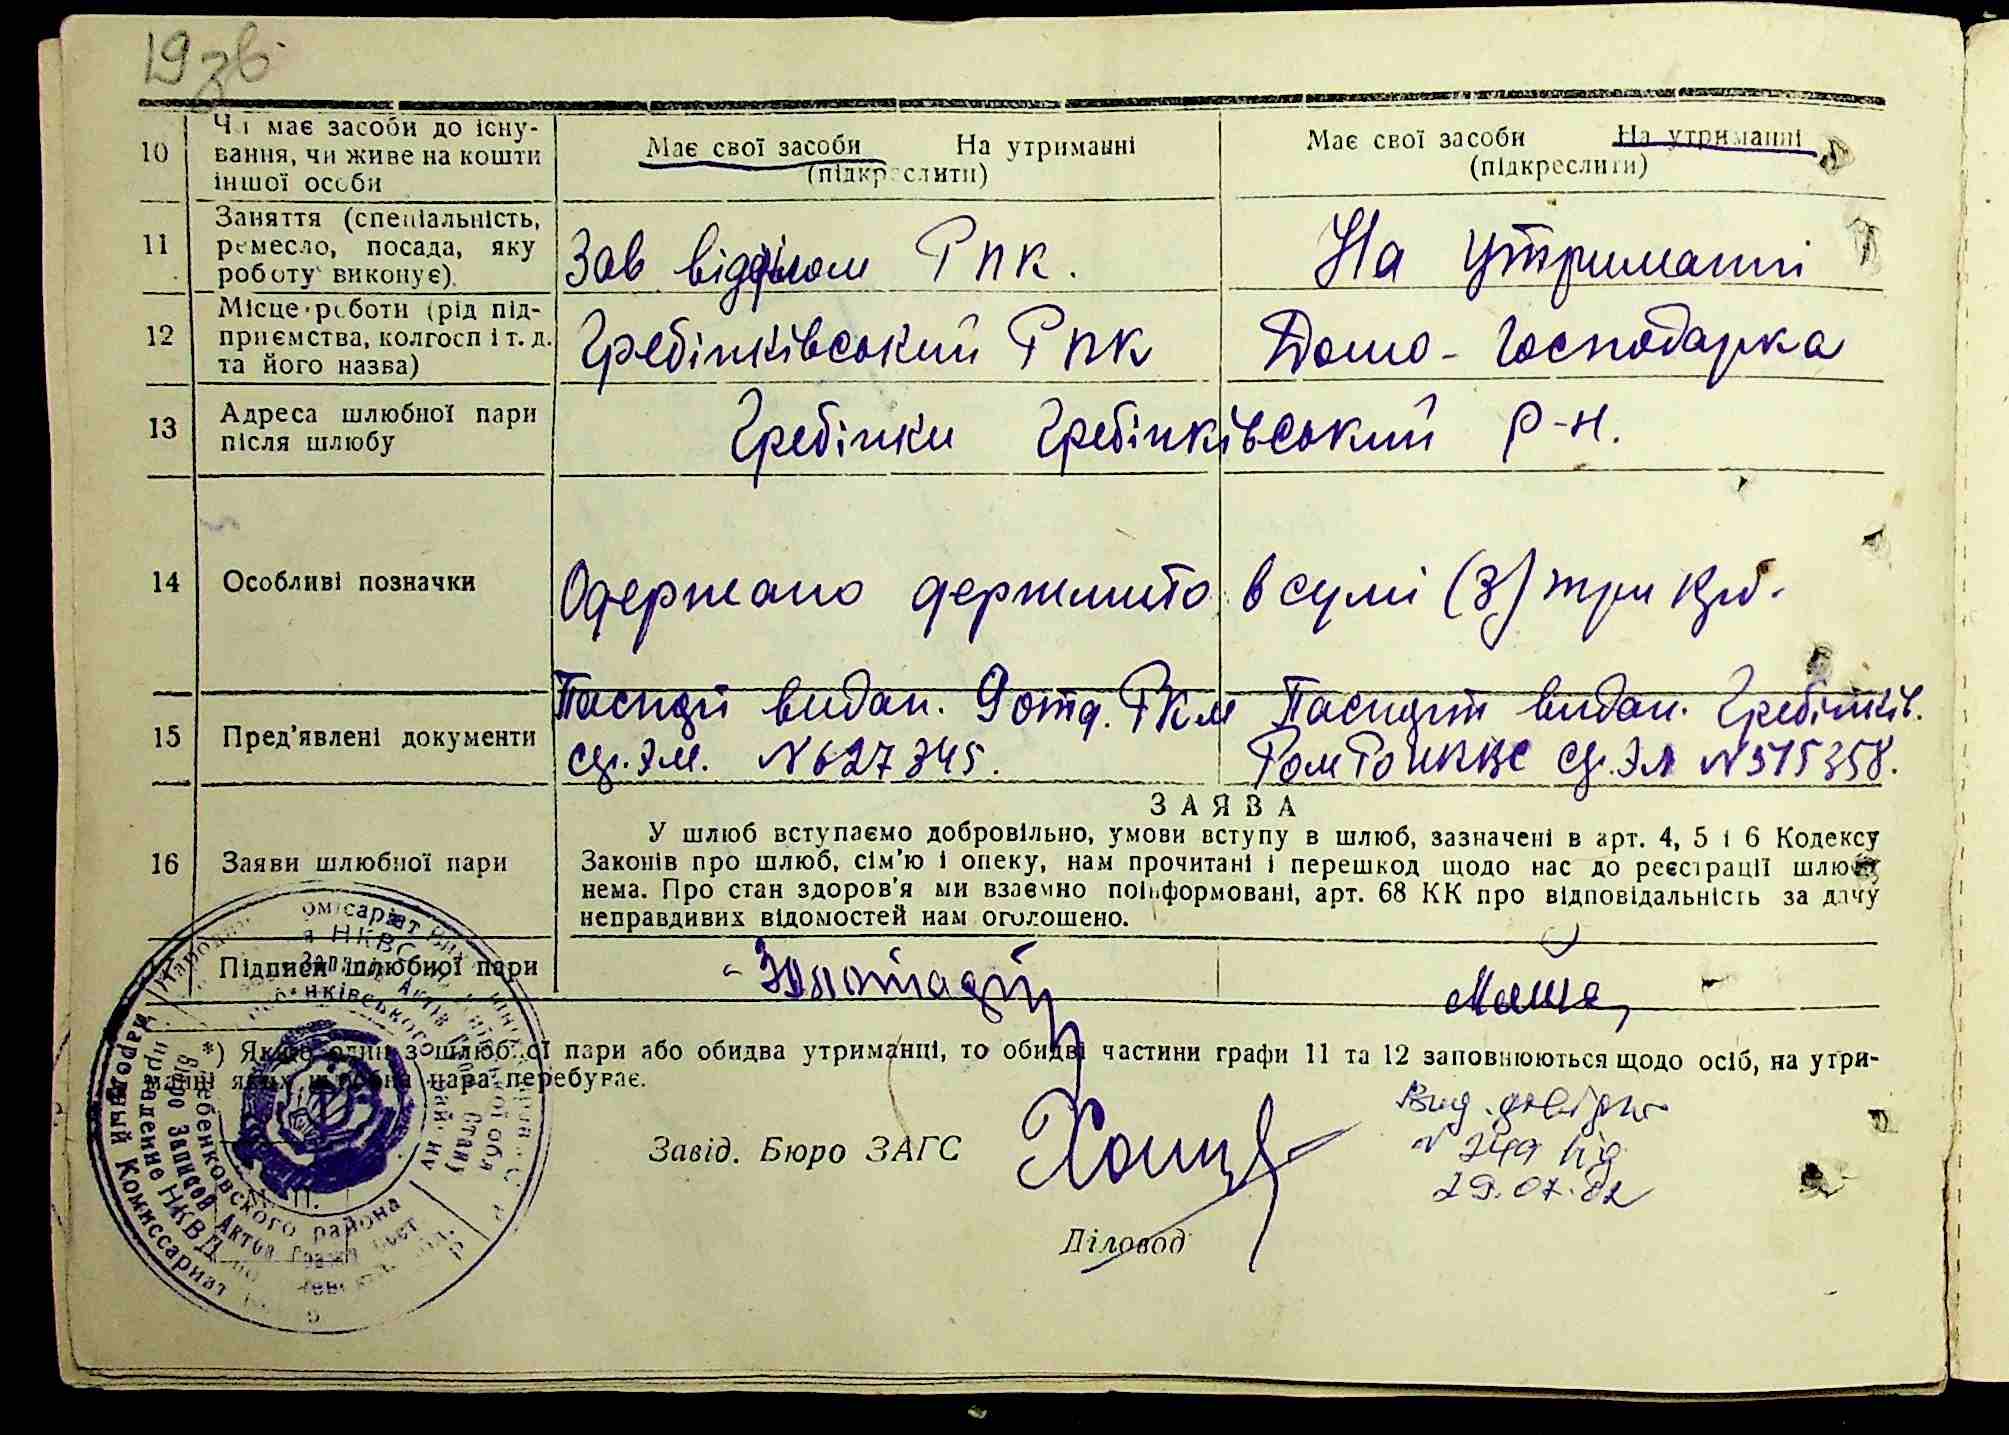 19 зв.
10 Чи має засоби до існу-
вання, чи живе на кошти
іншої особи
Має свої засоби На утриманні
(підкреслити)
Має свої засоби На утриманні
(підкреслити)
11 Заняття (спеціальність,
ремесло, посада, яку
роботу виконує)
Зав відділом РПК.
На утриманні
12 Місце роботи (рід під-
приємства, колгосп і т. д.
та його назва)
Гребінківський РПК
Домо-господарка
13 Адреса шлюбної пари
після шлюбу
Гребінки Гребінківський р-н.
14 Особливі позначки
Одержано держмито в сумі (3) три крб.
15 Пред'явлені документи
Паспорт видан. 9 отд. РКМ
ср. ЭМ. № 627345.
Паспорт видан. Гребінків.
НКВС ср. ЭМ № 515358.
ЗАЯВА
16 Заяви шлюбної пари
У шлюб вступаємо добровільно, умови вступу в шлюб, зазначені в арт. 4, 5 і 6 Кодексу
Законів про шлюб, сім'ю і опеку, нам прочитані і перешкод щодо нас до реєстрації шлюбу
нема. Про стан здоров'я ми взаємно поінформовані, арт. 68 КК про відповідальність за дачу
неправдивих відомостей нам оголошено.
17 Підписи шлюбної пари
*) Якщо один з шлюбної пари або обидва утриманці, то обидві частини графи 11 та 12 заповнюються щодо осіб, на утри-
манні яких шлюбна пара перебуває.
Завід. Бюро ЗАГС
Вид. довідку
№ 249 від
29.07.82
Діловод
М. П.
Народный Комиссариат
Управление НКВД по
Бюро Записей Актов Гражд. Сост.
Гребенковского района